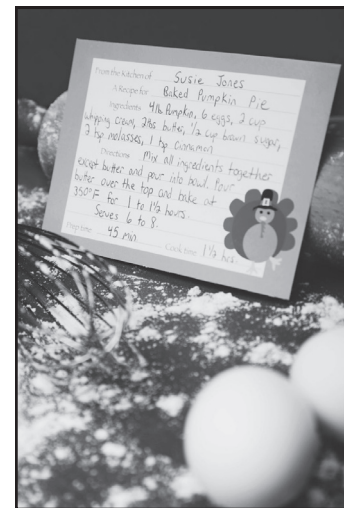 From the Kitchen of Susie Jones
A Recipe for Baked Pumpkin Pie
Ingredients 4lb Pumpkin, 6 eggs, 2 cup
whipping cream, 2tbs butter, 1/2 cup brown sugar,
2 tsp molasses, 1 tsp cinnamon
Directions Mix all ingredients together
except butter and pour into bowl. Pour
butter over the top and bake at
350°F for 1 to 1 1/2 hours.
Serves 6 to 8.
Prep time 45 min Cook time 1 1/2 hrs.